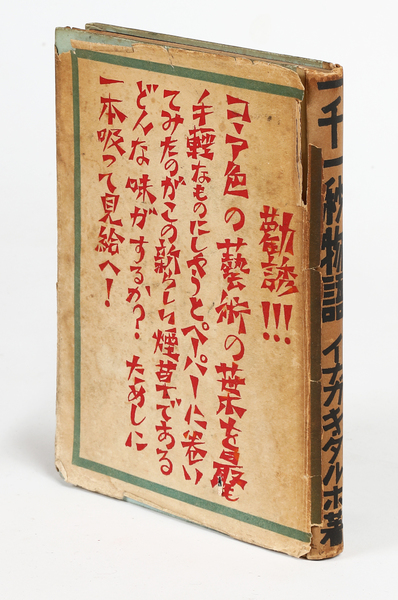 勸誘!!!
コヽア色の藝術の葉を最も
手輕なものにしやうとペーパーに巻い
てみたのがこの新らしい煙草である
どんな味がするか? ためしに
一本吸って見給へ!
一千一秒物語 イナガキタルホ著